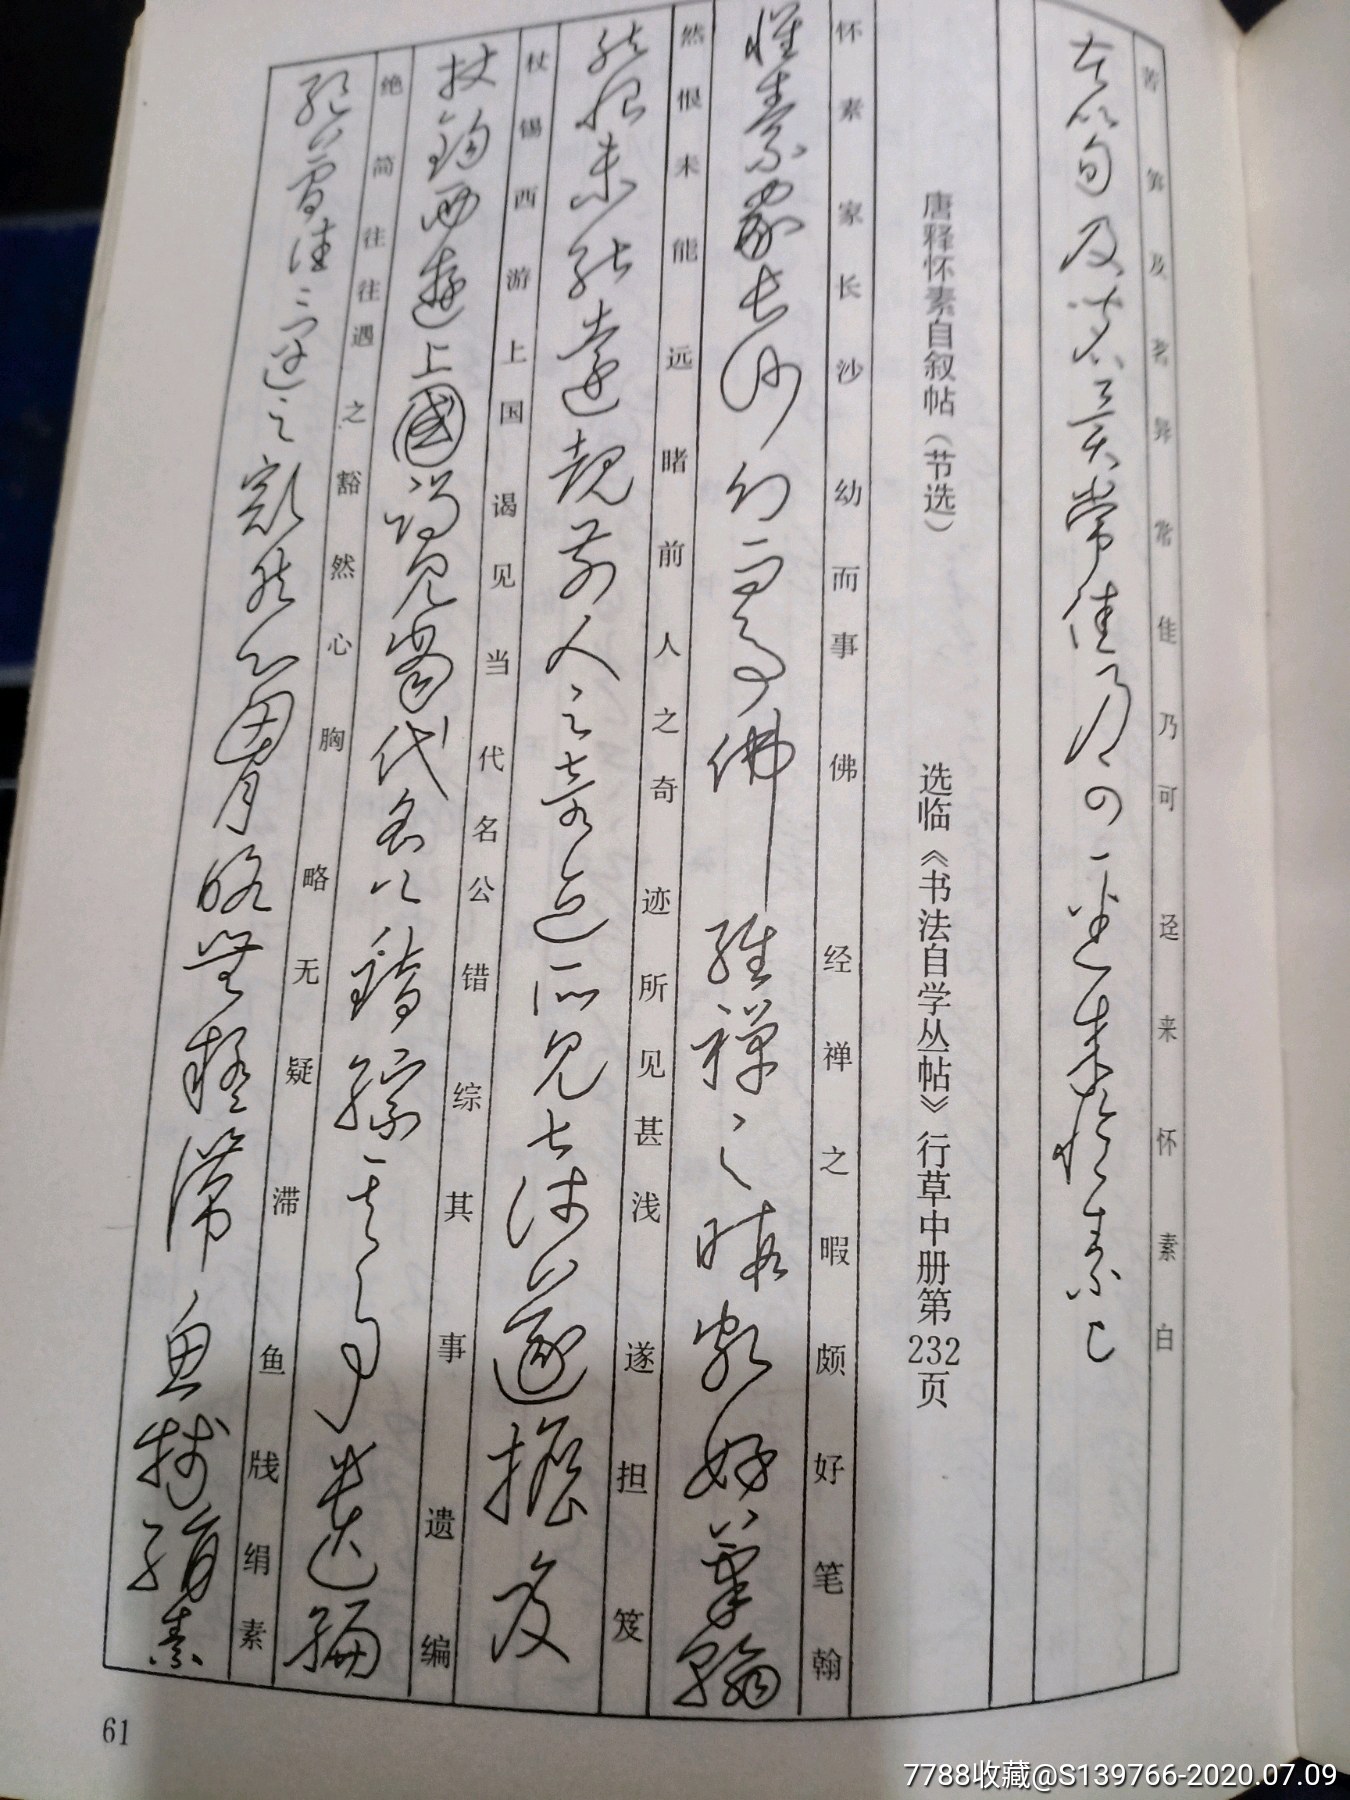 苦笋及茗异常佳乃可迳来怀素白
苦笋及茗異常佳乃可迳来懷素白
唐释怀素自叙帖（节选） 选临《书法自学丛帖》行草中册第232页
怀素家长沙幼而事佛经禅之暇颇好笔翰
懷素家長沙幼而事佛經禪之暇頗好筆翰
然恨未能远睹前人之奇迹所见甚浅遂担笈
然恨未能遠覩前人之奇迹所見甚淺遂擔笈
杖锡西游上国谒见当代名公错综其事遗编
杖錫西遊上國謁見當代名公錯綜其事遺編
绝简往往遇之豁然心胸略无疑滞鱼牋绢素
絕簡往往遇之豁然心胸略無疑滯魚牋絹素
61
7788收藏@S139766-2020.07.09